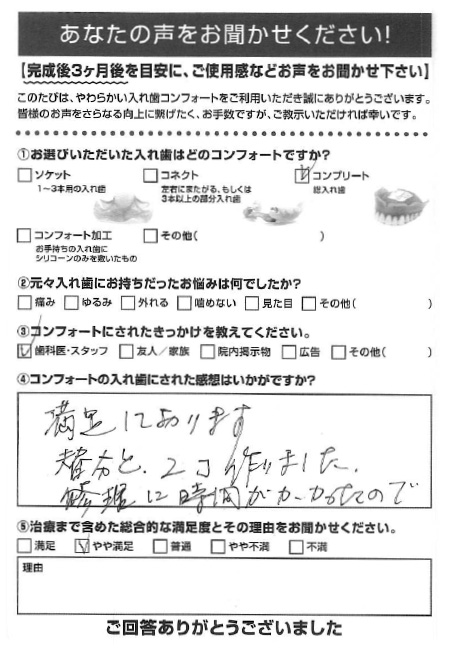 あなたの声をお聞かせください!
【完成後3ヶ月後を目安に、ご使用感などお声をお聞かせ下さい】
このたびは、やわらかい入れ歯コンフォートをご利用いただき誠にありがとうございます。
皆様のお声をさらなる向上に繋げたく、お手数ですが、ご教示いただければ幸いです。
①お選びいただいた入れ歯はどのコンフォートですか?
□ソケット 1～3本用の入れ歯
□コネクト 左右にまたがる、もしくは3本以上の部分入れ歯
☑コンプリート 総入れ歯
□コンフォート加工 お手持ちの入れ歯にシリコーンのみを敷いたもの
□その他( )
②元々入れ歯にお持ちだったお悩みは何でしたか?
□痛み □ゆるみ □外れる □噛めない □見た目 □その他( )
③コンフォートにされたきっかけを教えてください。
☑歯科医・スタッフ □友人／家族 □院内掲示物 □広告 □その他( )
④コンフォートの入れ歯にされた感想はいかがですか?
満足しております
替分と、2コ作りました。
修理に時間がかかったので
⑤治療まで含めた総合的な満足度とその理由をお聞かせください。
□満足 ☑やや満足 □普通 □やや不満 □不満
理由
ご回答ありがとうございました